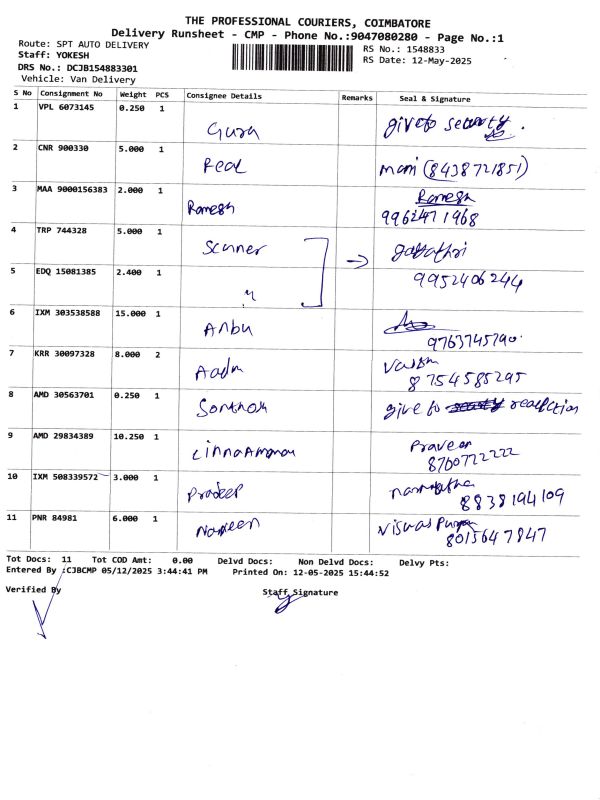 THE PROFESSIONAL COURIERS, COIMBATORE
Delivery Runsheet - CMP - Phone No.:9047080280 - Page No.:1
Route: SPT AUTO DELIVERY
Staff: YOKESH
DRS No.: DCJB154883301
Vehicle: Van Delivery
RS No.: 1548833
RS Date: 12-May-2025
S No Consignment No Weight PCS Consignee Details Remarks Seal & Signature
1 VPL 6073145 0.250 1 Guru give to security.
2 CNR 900330 5.000 1 Real mani (8438721851)
3 MAA 9000156383 2.000 1 Ramesh Ramesh
9962471968
4 TRP 744328 5.000 1 Scanner → gayathri
5 EDQ 15081385 2.400 1 " 9952406244
6 IXM 303538588 15.000 1 Anbu
9763745790.
7 KRR 30097328 8.000 2
8754585295
8 AMD 30563701 0.250 1 Santhosh give to
9 AMD 29834389 10.250 1 Praveen
8760722222
10 IXM 508339572 3.000 1 Pradeep
8838194109
11 PNR 84981 6.000 1 Naveen
8015647847
Tot Docs: 11 Tot COD Amt: 0.00 Delvd Docs: Non Delvd Docs: Delvy Pts:
Entered By :CJBCMP 05/12/2025 3:44:41 PM Printed On: 12-05-2025 15:44:52
Verified By Staff Signature